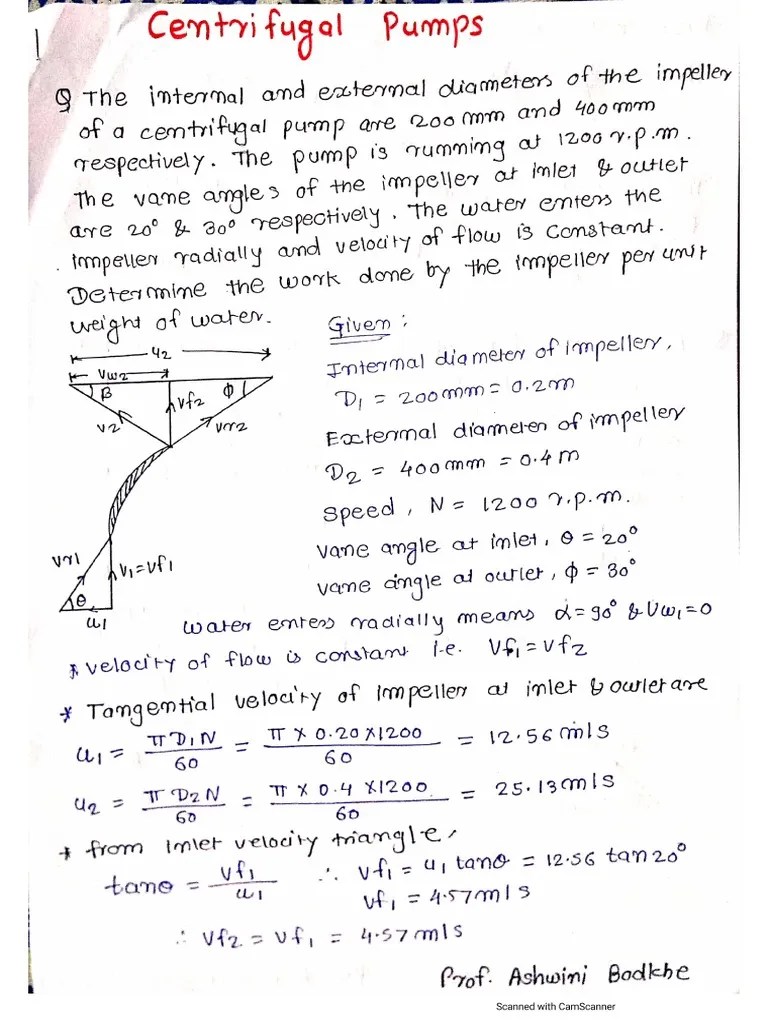 1
Centrifugal Pumps
Q The internal and external diameters of the impeller
of a centrifugal pump are 200 mm and 400 mm
respectively. The pump is running at 1200 r.p.m.
The vane angles of the impeller at inlet & outlet
are 20° & 30° respectively. The water enters the
impeller radially and velocity of flow is constant.
Determine the work done by the impeller per unit
weight of water.
Given :
u2
Vw2
β
Vf2
ϕ
V2
Vr2
Internal diameter of impeller,
D1 = 200mm = 0.2m
External diameter of impeller
D2 = 400mm = 0.4m
Speed, N = 1200 r.p.m.
Vane angle at inlet, θ = 20°
Vane angle at outlet, ϕ = 30°
Vr1
V1=Vf1
θ
u1
Water enters radially means α=90° & Vw1=0
* Velocity of flow is constant i.e. Vf1 = Vf2
* Tangential velocity of impeller at inlet & outlet are
u1 = πD1N/60 = π × 0.20 × 1200/60 = 12.56 m/s
u2 = πD2N/60 = π × 0.4 × 1200/60 = 25.13 m/s
* from inlet velocity triangle,
tanθ = Vf1/u1 ∴ Vf1 = u1 tanθ = 12.56 tan20°
Vf1 = 4.57 m/s
∴ Vf2 = Vf1 = 4.57 m/s
Prof. Ashwini Bodkhe
Scanned with CamScanner